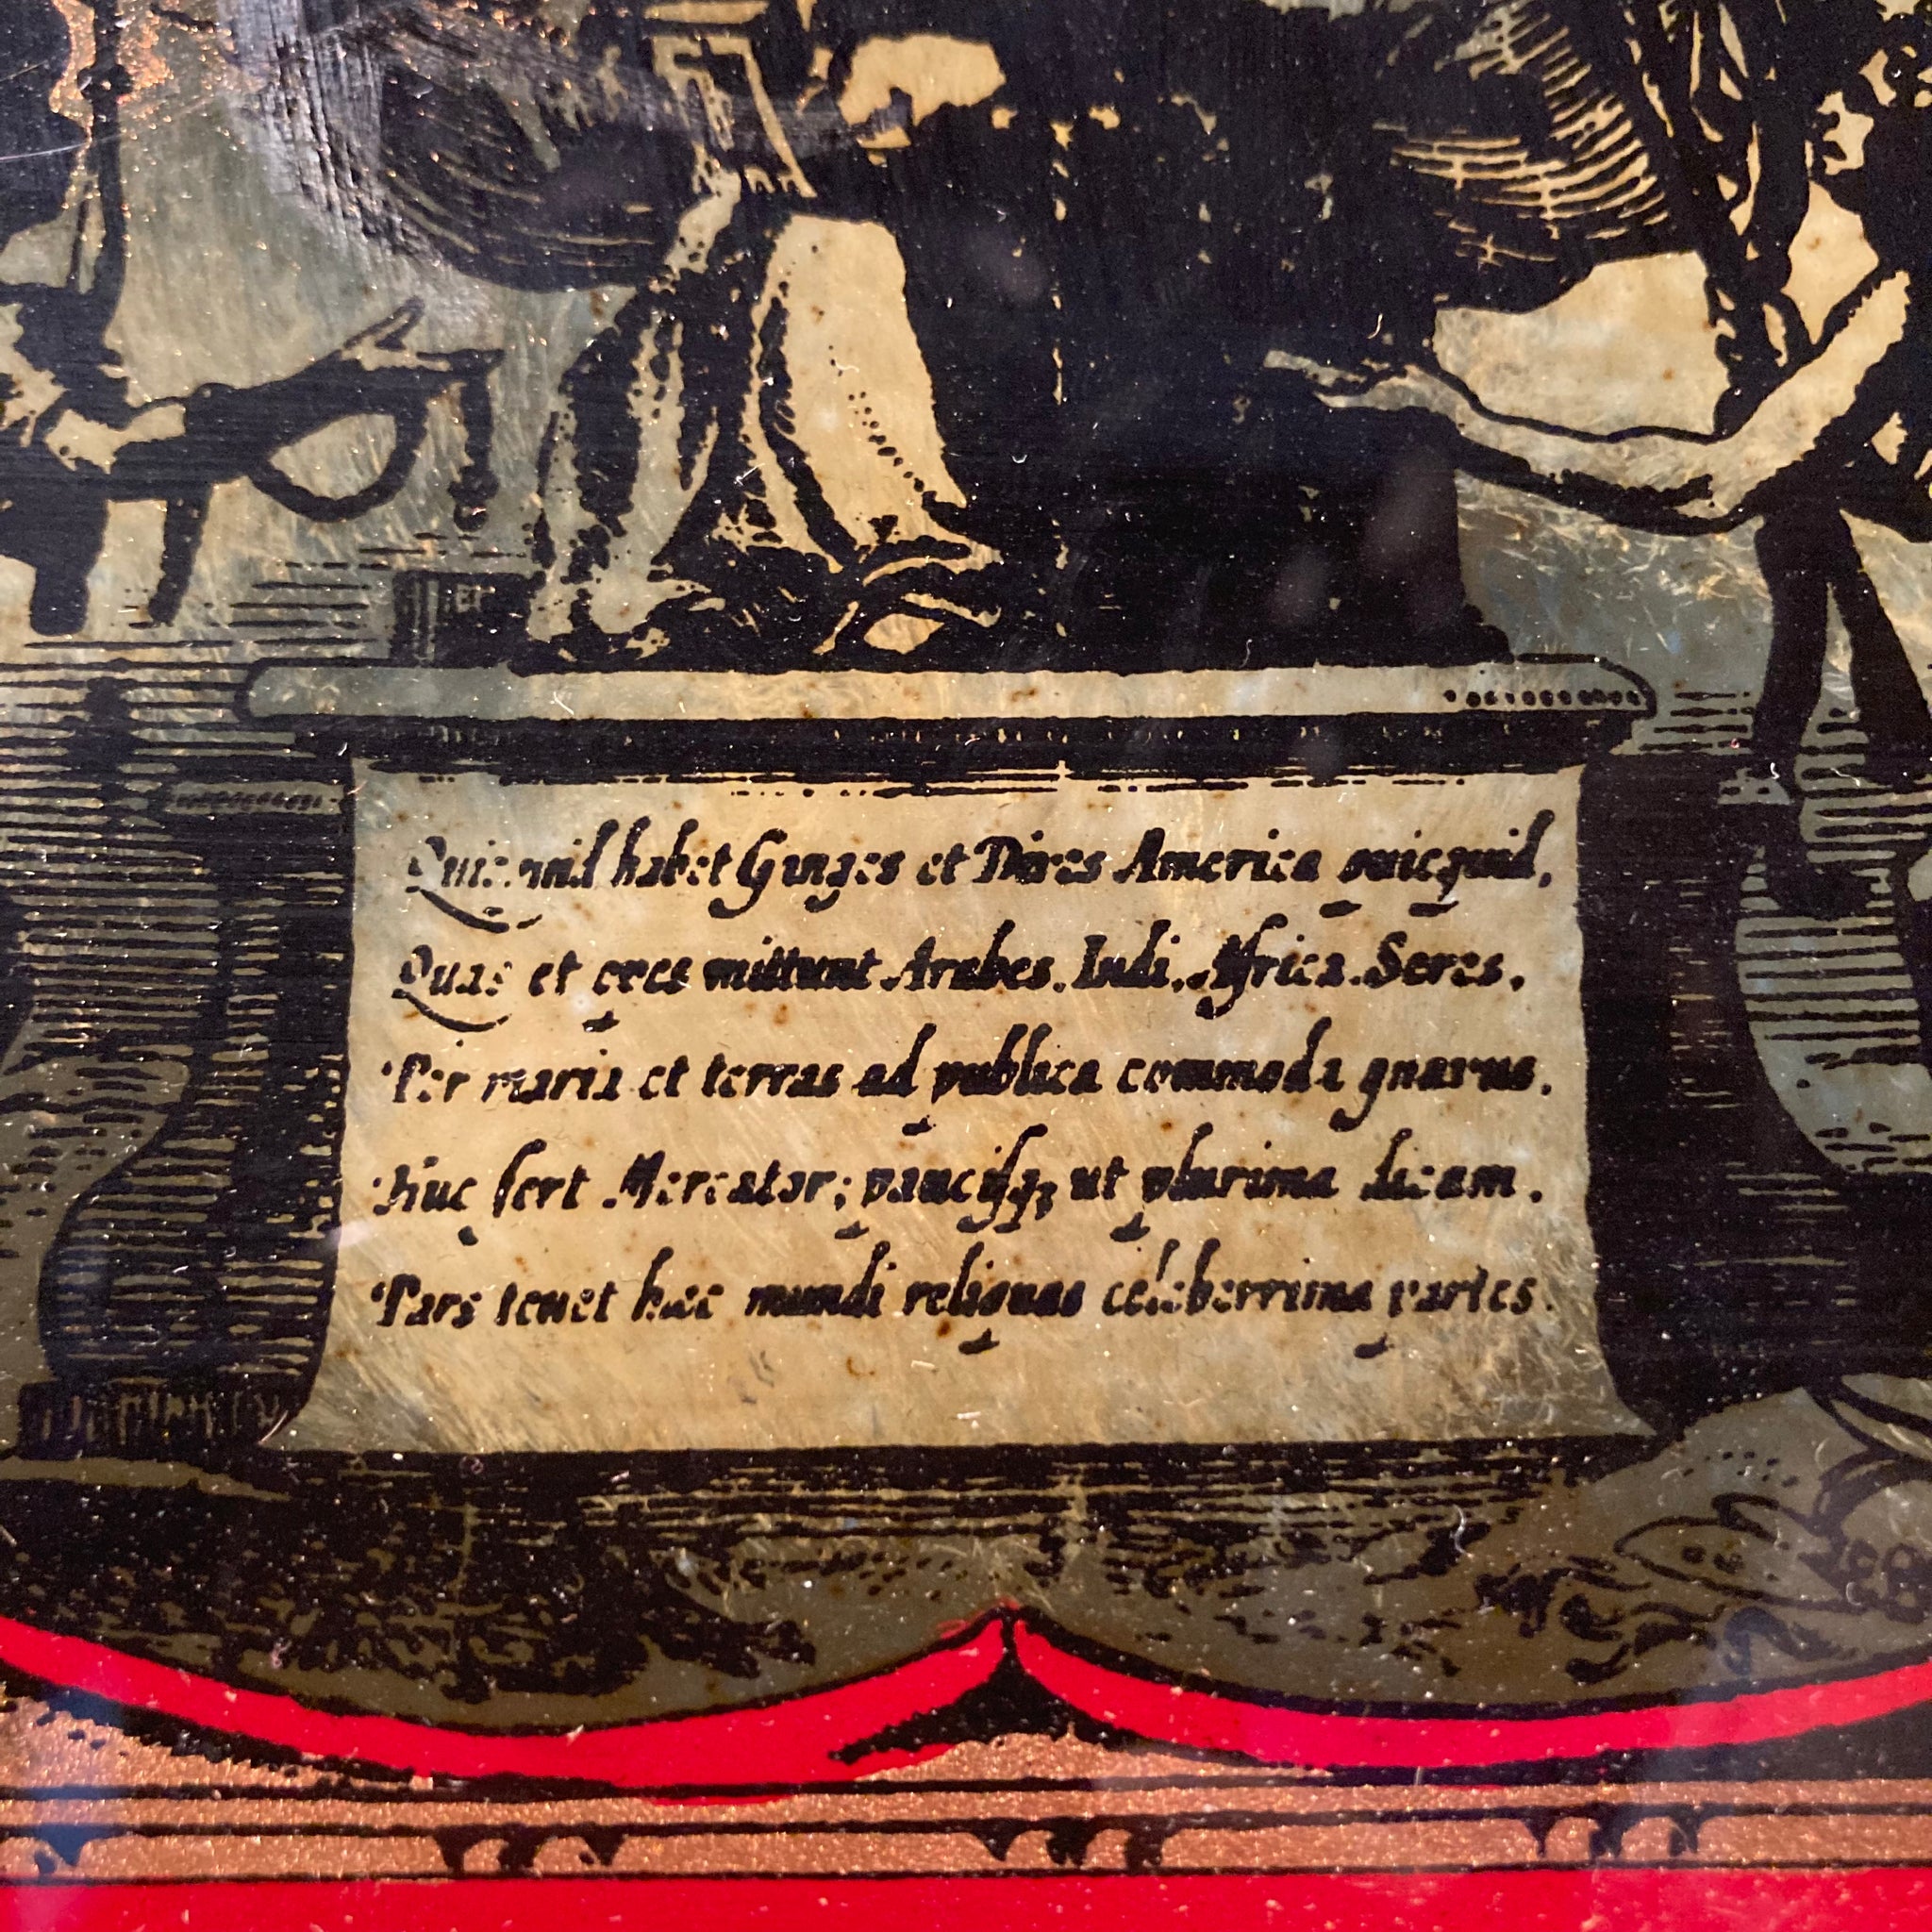 Quicquid habet Ganges et Dives America quicquid,
Quas et opes mittunt Arabes, Indi, Africa, Seres,
Per maria et terras ad publica commoda gnarus,
Huc fert Mercator; paucisq, ut plurima dicam,
Pars tenet haec mundi reliquas celeberrima partes.